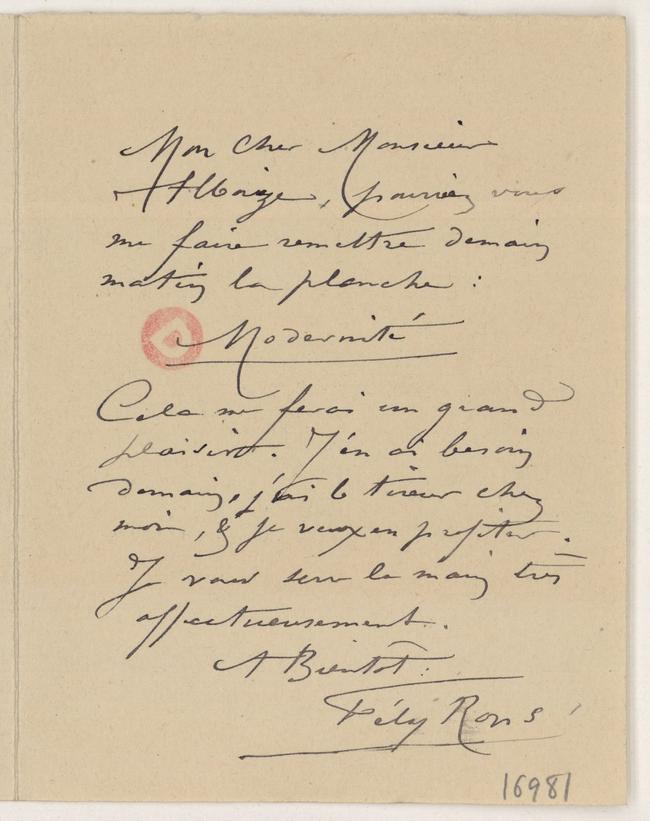 Mon Cher Monsieur
Alboize, pourriez vous
me faire remettre demain
matin la planche :
Modernité
Cela me ferai un grand
plaisir. J'en ai besoin
demain, j'ai le tireur chez
moi, & je veux en profiter.
Je vous serre la main très
affectueusement.
A Bientôt.
Fély Rops
16981